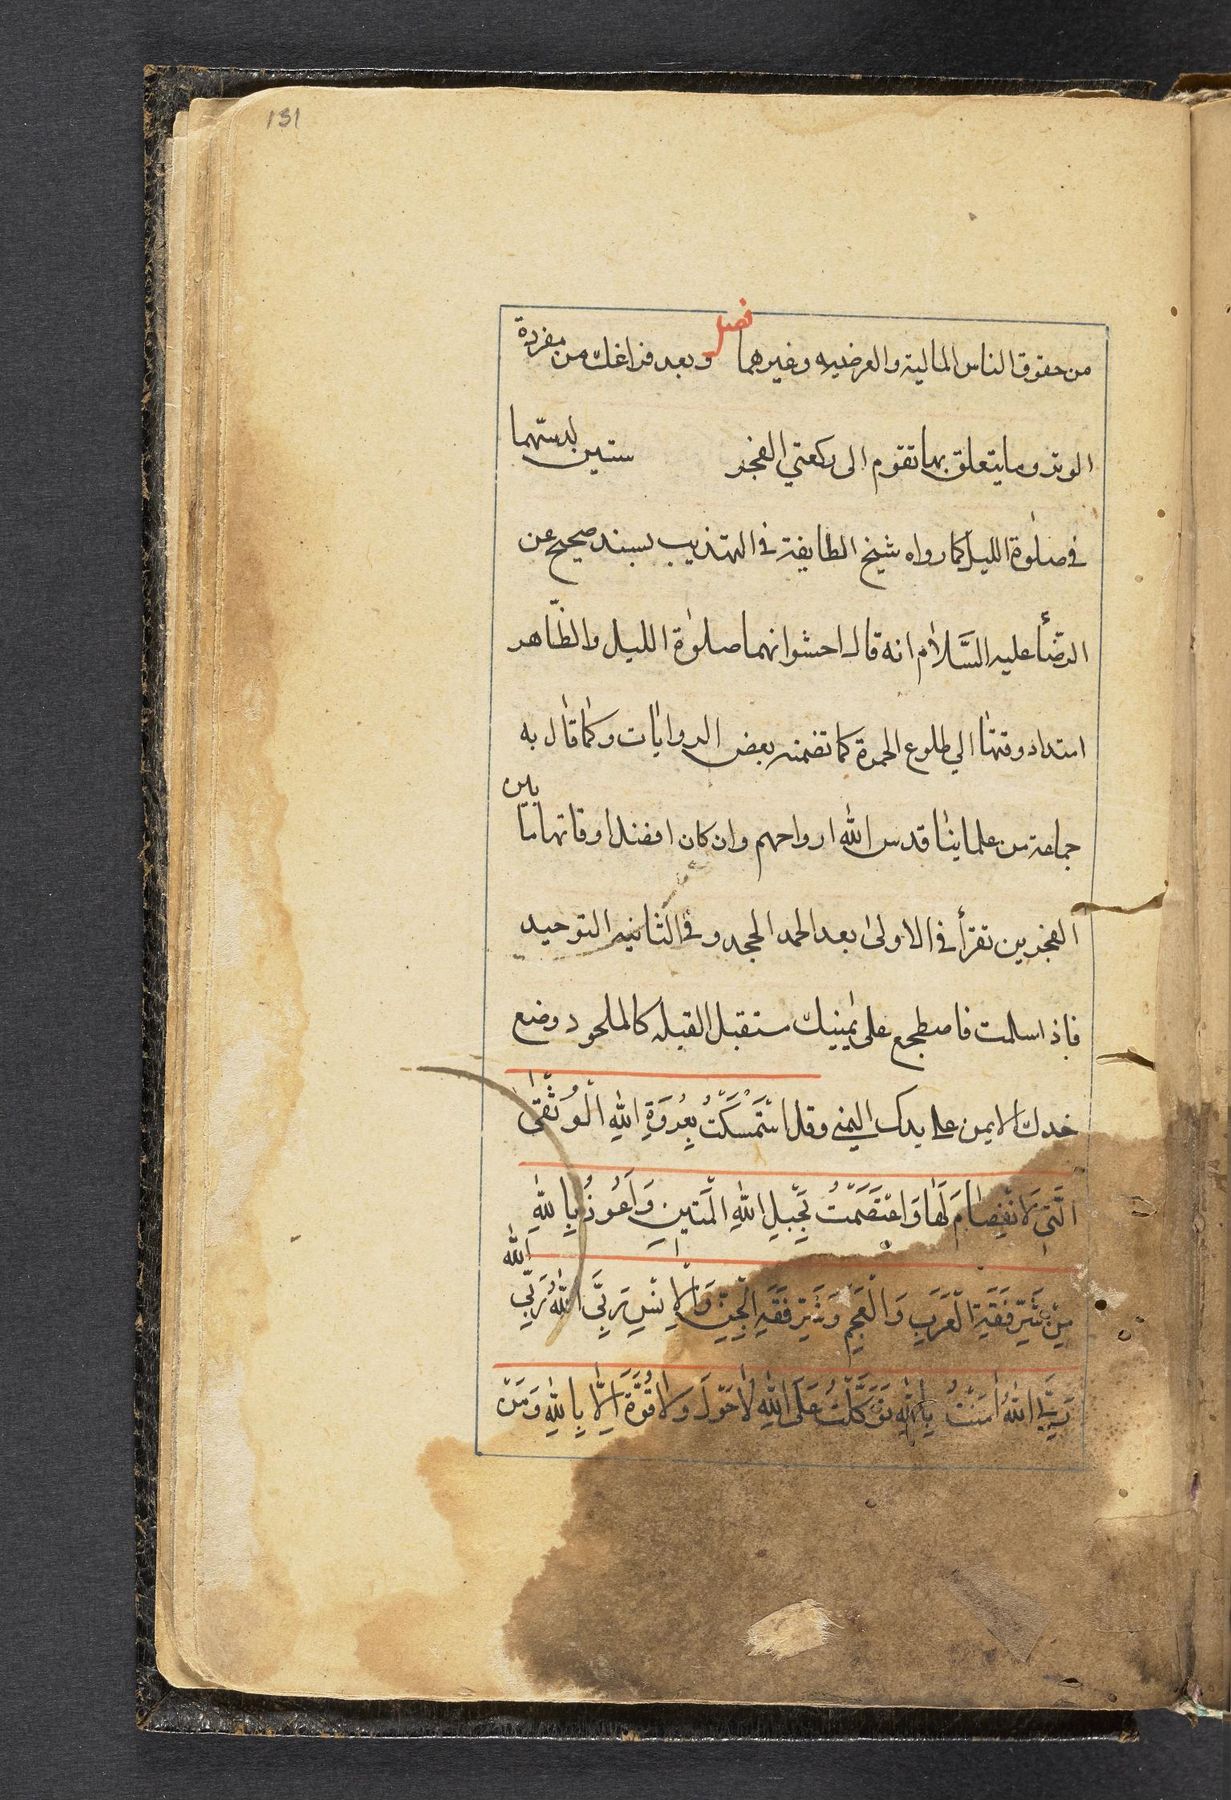 131
من حقوق الناس المالية والعرضيه وغيرهما فصل وبعد فراغك من مفردة
الوتر وما يتعلق بها تقوم الى ركعتي الفجر ستين بدستهما
في صلوة الليل كما رواه شيخ الطايفة في التهذيب بسند صحيح عن
الرضا عليه السَّلام انه قال احشوا بهما صلوة الليل والظّاهر
امتداد وقتها الي طلوع الحمرة كما تضمنه بعض الروايات وكما قال به
جماعة من علماينا قدس الله ارواحهم وان كان افضل اوقاتها ما بين
الفجرين تقرأ في الاولى بعد الحمد الجحد وفي الثانيه التوحيد
فاذا سلمت فاضطجع على يمينك مستقبل القبله كالملحود وضع
خدك الايمن على يدك اليمنى وقل اسْتَمْسَكْتُ بِعُرْوَةِ اللهِ الْوُثْقٰى
الَّتِي لَا انْفِصَامَ لَهَا وَاعْتَصَمْتُ بِحَبْلِ اللهِ الْمَتِينِ وَاَعُوذُ بِاللهِ
مِنْ شَرِّ فَسَقَةِ الْعَرَبِ وَالْعَجَمِ وَشَرِّ فَسَقَةِ الْجِنِّ وَالْاِنْسِ رَبِّيَ اللهُ رَبِّي الله
رَبِّيَ اللهُ اٰمَنْتُ بِاللهِ تَوَكَّلْتُ عَلَى اللهِ لَا حَوْلَ وَلَا قُوَّةَ اِلَّا بِاللهِ وَمَنْ